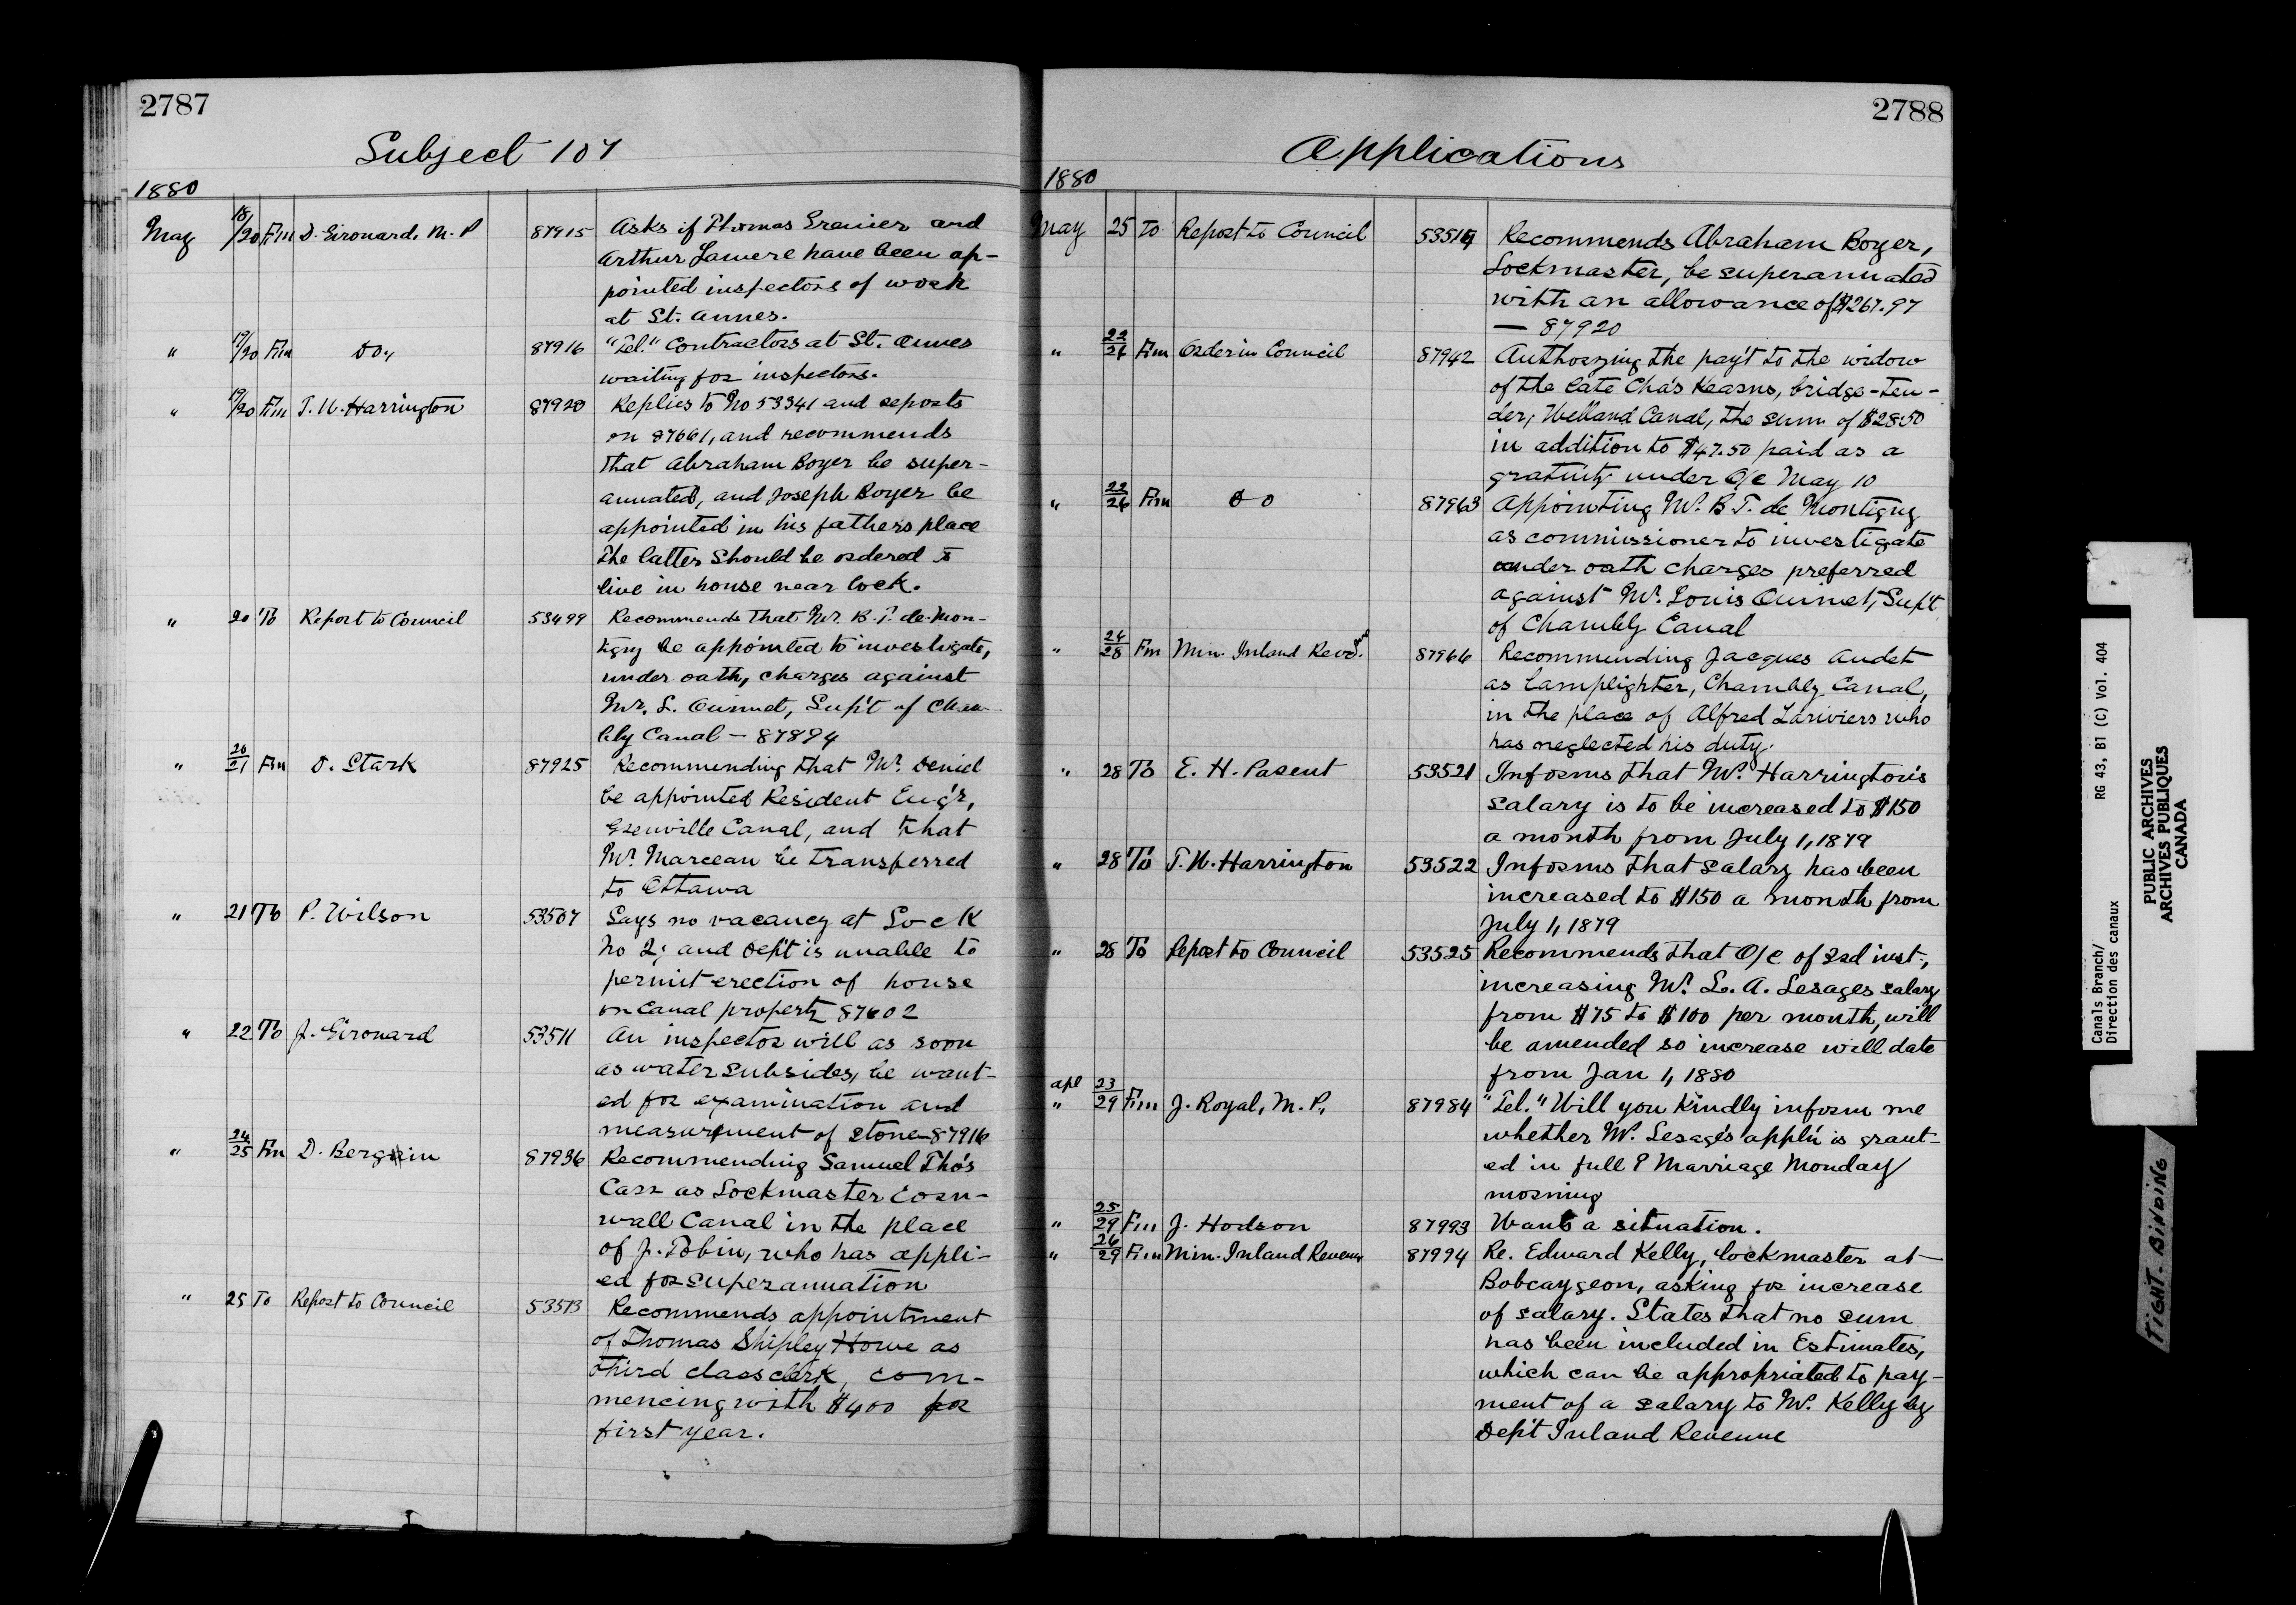 2787
Subject 107
1880
May 18/20 Fm D. Girouard, M.P 87915 Asks if Thomas Grenier and
Arthur Lamere have been ap-
pointed inspectors of work
at St. Annes.
" 19/20 Fm Do, 87916 "Tel." Contractors at St. Annes
waiting for inspectors.
" 19/20 Fm T. N. Harrington 87920 Replies to No 53341 and reports
on 87661, and recommends
that Abraham Boyer be super-
annuated, and Joseph Boyer be
appointed in his fathers place
The latter should be ordered to
live in house near lock.
" 20 To Report to Council 53499 Recommends that Mr. B. T. de Mon-
tigny be appointed to investigate,
under oath, charges against
Mr. L. Ouimet, Sup't of Cham-
bly Canal - 87894
" 20/21 Fm D. Stark 87925 Recommending that Mr. Deniel
be appointed Resident Eng'r,
Grenville Canal, and that
Mr. Marceau be transferred
to Ottawa
" 21 To P. Wilson 53507 Says no vacancy at Lock
No 2; and Dep't is unable to
permit erection of house
on canal property 87602
" 22 To J. Girouard 53511 An inspector will as soon
as water subsides, be want-
ed for examination and
measurement of stone - 87916
" 24/25 Fm D. Bergin 87936 Recommending Samuel Tho's
Carr as Lockmaster Corn-
wall Canal in the place
of J. Tobin, who has appli-
ed for superannuation
" 25 To Report to Council 53513 Recommends appointment
of Thomas Shipley Howe as
third class clerk, com-
mencing with $400 for
first year.
2788
Applications
1880
May 25 To Report to Council 53514 Recommends Abraham Boyer,
Lockmaster, be superannuated
with an allowance of $267.97
— 87920
" 22/26 Fm Order in Council 87942 Authorzing the pay't to the widow
of the late Cha's Kearns, bridge-ten-
der, Welland Canal, the sum of $28.50
in addition to $47.50 paid as a
gratuity under O/C May 10
" 22/26 Fm Do 87963 Appointing Mr. B T. de Montigny
as commissioner to investigate
under oath charges preferred
against Mr. Louis Ouimet, Sup't
of Chambly Canal
" 24/28 Fm Min. Inland Revenue 87966 Recommending Jacques Audet
as lamplighter, Chambly Canal,
in the place of Alfred Lariviers who
has neglected his duty.
" 28 To E. H. Parent 53521 Informs that Mr. Harrington's
salary is to be increased to $150
a month from July 1, 1879
" 28 To T. N. Harrington 53522 Informs that salary has been
increased to $150 a month from
July 1, 1879
" 28 To Report to Council 53525 Recommends that O/C of 3rd inst.,
increasing Mr. L. A. Lesages salary
from $75 to $100 per month, will
be amended so increase will date
from Jan 1, 1880
apl 23
" 29 Fm J. Royal, M. P., 87984 "Tel." Will you kindly inform me
whether Mr. Lesage's appl'n is grant-
ed in full? Marriage Monday
morning
" 25/29 Fm J. Hodson 87993 Wants a situation.
" 26/29 Fm Min. Inland Revenue 87994 Re. Edward Kelly, lockmaster at
Bobcaygeon, asking for increase
of salary. States that no sum
has been included in Estimates,
which can be appropriated to pay-
ment of a salary to Mr. Kelly by
Dep't Inland Revenue
Canals Branch/ RG 43, B1 (C) Vol. 404
Direction des canaux
PUBLIC ARCHIVES
ARCHIVES PUBLIQUES
CANADA
TIGHT-BINDING